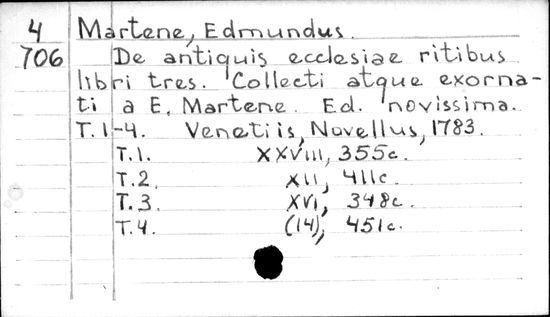 4 Martene, Edmundus.
706 De antiquis ecclesiae ritibus
libri tres. Collecti atque exorna-
ti a E. Martene. Ed. novissima.
T. 1-4. Venetiis, Novellus, 1783.
T. 1. XXVIII, 355c.
T. 2. XII, 411c.
T. 3. XVI, 348c.
T. 4. (14), 451c.